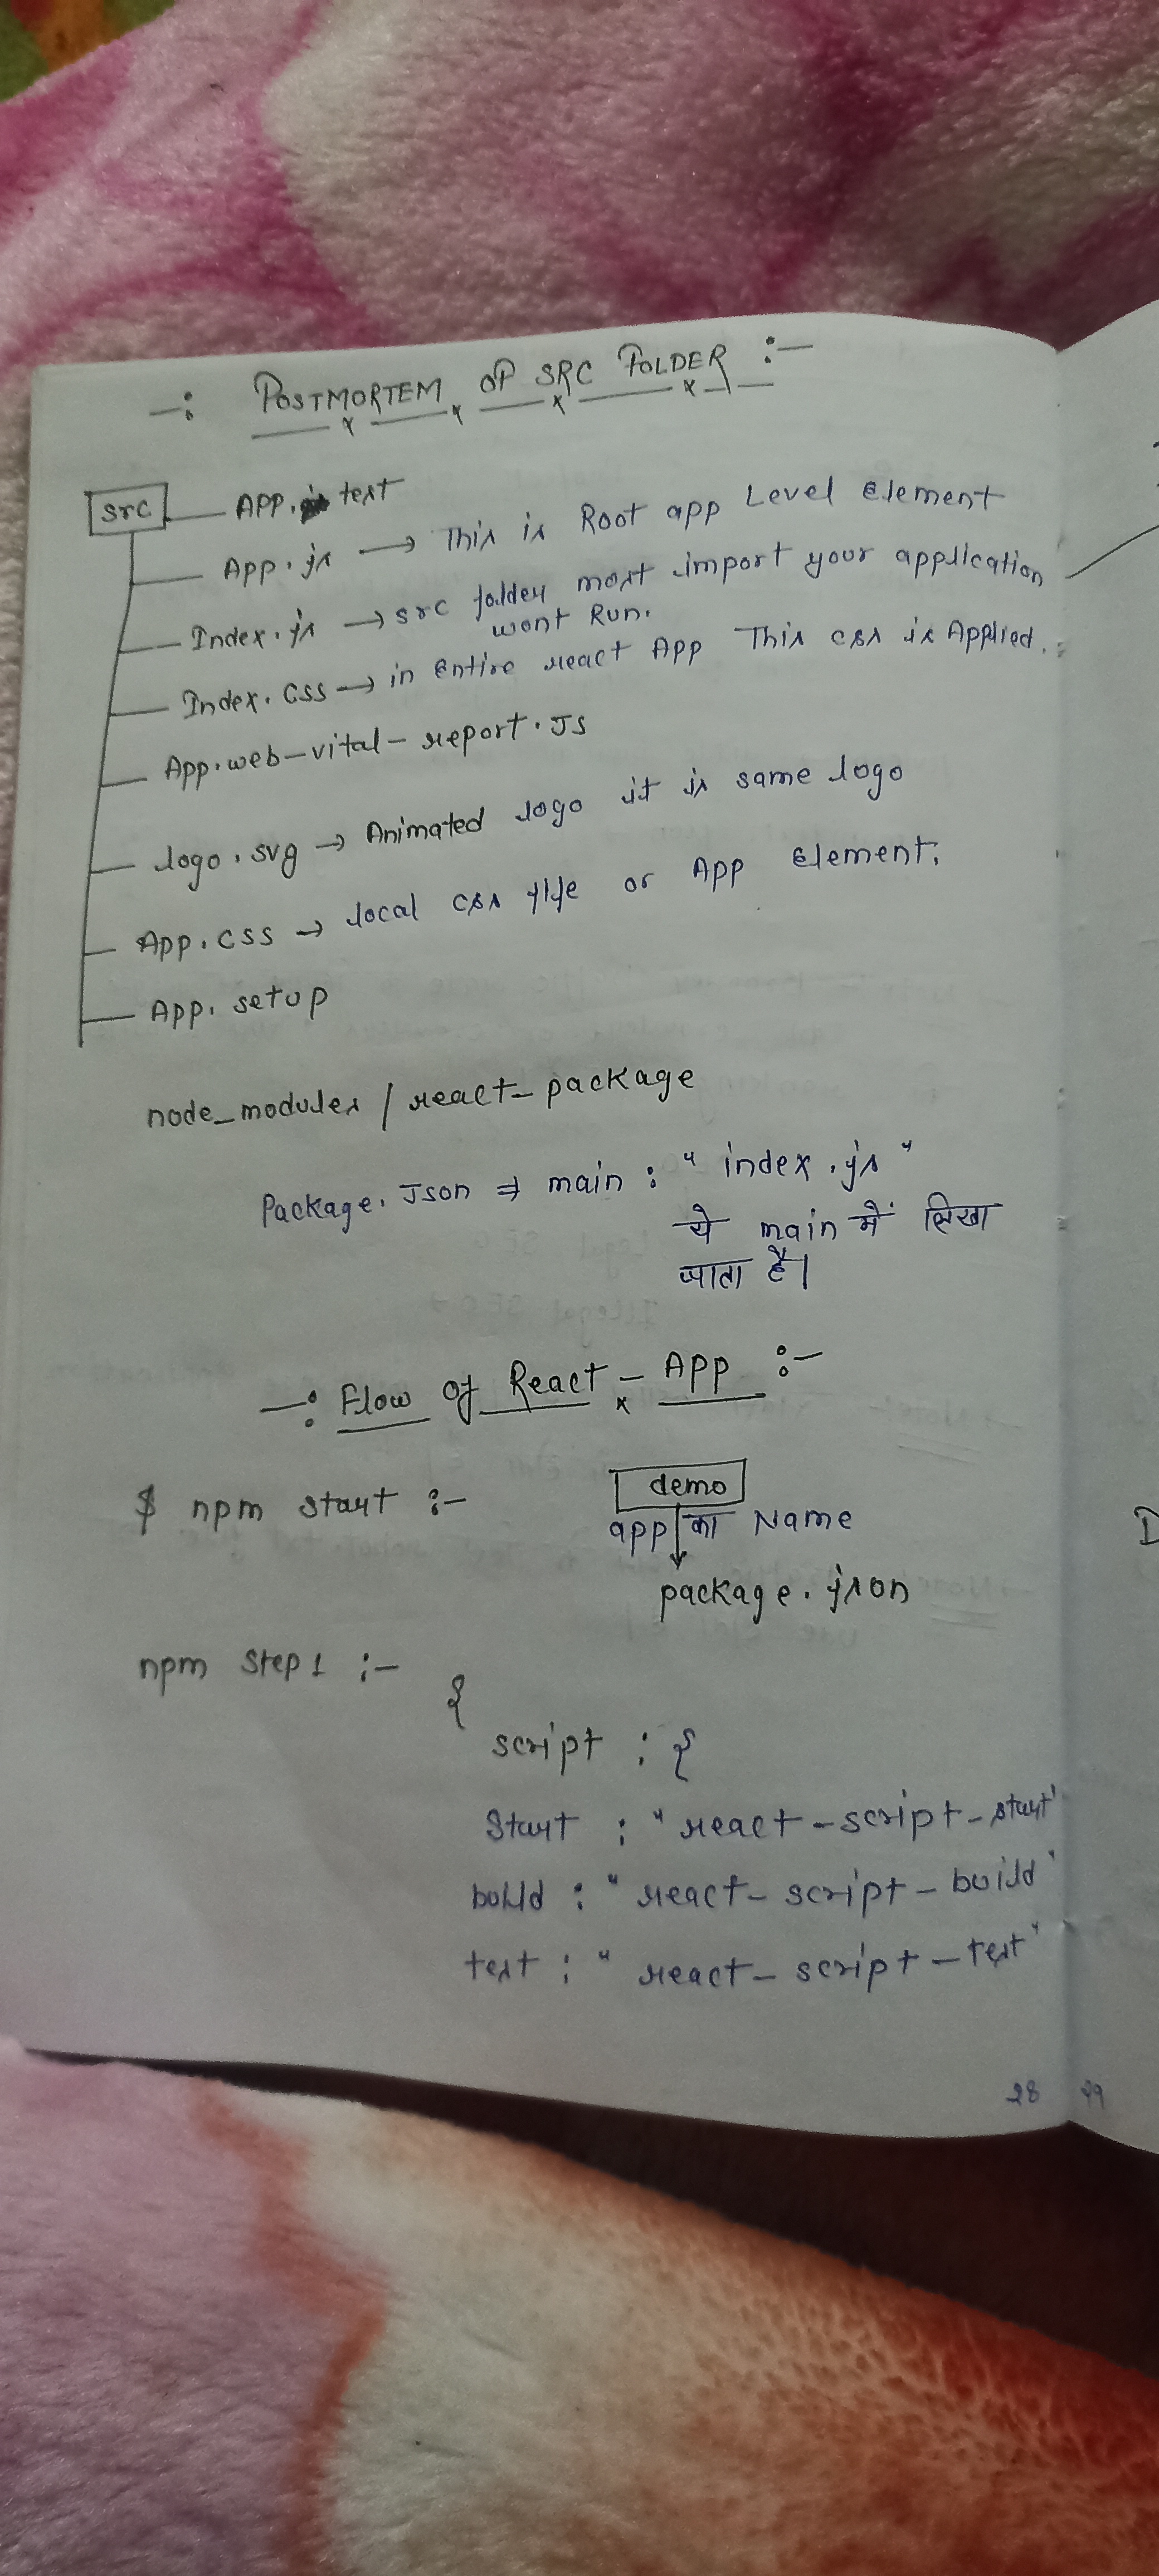 -: POSTMORTEM OF SRC FOLDER :-
src
App. test
App.js → This is Root app Level Element
Index.js → src folder most import your application
wont Run.
Index.css → in Entire react App This css is Applied.
App.web-vital-report.JS
logo.svg → Animated logo it is same logo
App.css → local css file or App Element.
App. setup
node_modules / react-package
Package.Json ⇒ main : "index.js"
ये main में लिखा
जाता है।
-: Flow of React - App :-
$ npm start :-
demo
app का Name
package.json
npm step 1 :-
{
script : {
Start : "react-script-start"
build : "react-script-build"
test : "react-script-test"
28